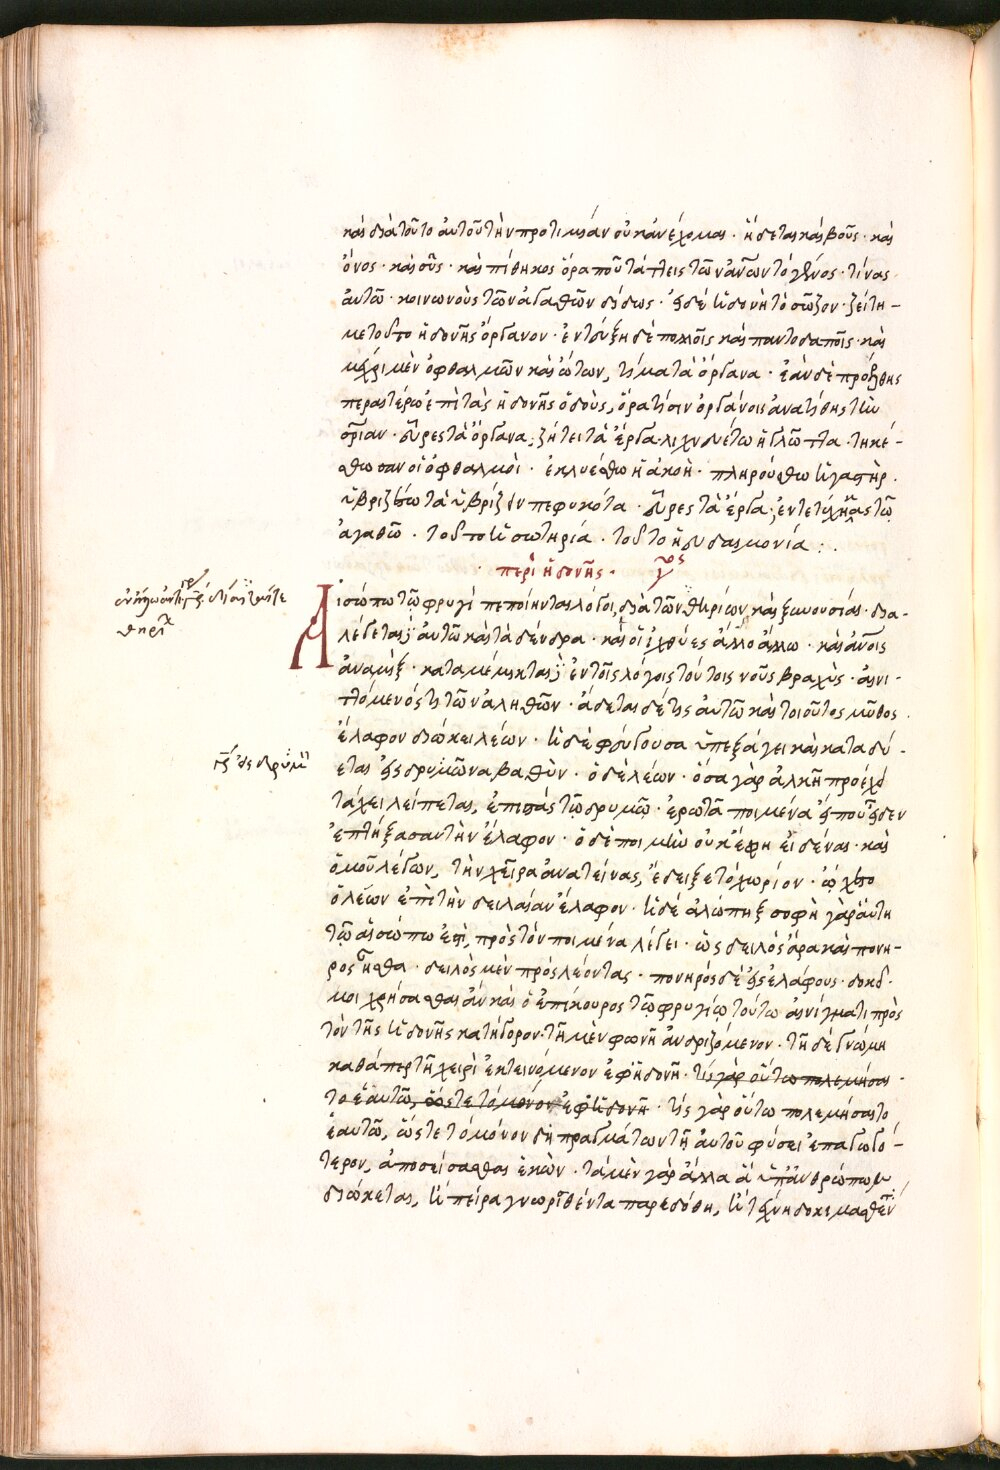 καὶ διὰ τοῦτο αὐτοῦ τὴν προτιμίαν οὐκ ἀνέχομαι · ἥδεται καὶ βοῦς · καὶ
ὄνος · καὶ σῦς · καὶ πίθηκος ὅρα ποῦ τάττεις τῶν ἀνων τὸ γένος · τίνας
αὐτῶ · κοινωνοὺς τῶν ἀγαθῶν δίδως · εἰ δέ ἡδονὴ τὸ σῶζον · ζείτη-
με τοῦτο ἡδονῆς ὄργανον · ἐντεύξη δὲ πολλοῖς καὶ παντοδαποῖς · καὶ
μέχρι μὲν ὀφθαλμῶν καὶ ὤτων, τίμα τὰ ὄργανα · ἐὰν δὲ προέλθης
περαιτέρω ἐπὶ τὰς ἡδονῆς ὁδούς, ὅρα τίσιν ὀργάνοις ἀνατίθης τὴν
σριαν · εὗρες τὰ ὄργανα, ζήτει τὰ ἔργα · λιχνευέτω ἡ γλῶττα · τηκέ-
σθωσαν οἱ ὀφθαλμοὶ · ἐκλυέσθω ἡ ἀκοὴ · πληρούσθω ἡ γαστὴρ ·
ὑβριζέτω τὰ ὑβρίζειν πεφυκότα · εὗρες τὰ ἔργα, ἐντετύχηκας τῶ
ἀγαθῶ · τοῦτο ἡ σωτηρία · τοῦτο ἡ εὐδαιμονία : ·
· περὶ ἡδονῆς · γος
Αἰσώπω τῶ φρυγὶ πεποίηνται λόγοι, διὰ τῶν θηρίων, καὶ ξυνουσίαι · δια-
λέγεται αὐτῶ καὶ τὰ δένδρα · καὶ οἱ ἰχθύες ἄλλο ἄλλω · καὶ ἀνοις
ἀναμὶξ · καταμέμικται ἐν τοῖς λόγοις τούτοις νοῦς βραχὺς · αἰνι-
ττόμενός τι τῶν ἀληθῶν · ἄδεται δέ τις αὐτῶ καὶ τοιοῦτος μῦθος ·
ἔλαφον διώκει λέων · ἡ δὲ φεύγουσα ὑπεξάγει καὶ καταδύ-
εται εἰς δρυμῶνα βαθὺν · ὁ δὲ λέων · ὅσα γὰρ ἀλκῆ προέχει
τάχει λείπεται, ἐπιπὰς τῶ δρυμῶ · ἐρωτᾶ ποιμένα εἴ που εἶδεν
ἐπτήξασαν τὴν ἔλαφον · ὁ δὲ ποιμὴν οὐκ ἔφη εἰδέναι · καὶ
ὁμοῦ λέγων, τὴν χεῖρα ἀνατείνας, ἔδειξε τὸ χωρίον ·
ὁ λέων ἐπὶ τὴν δειλαίαν ἔλαφον · ἡ δέ ἀλώπηξ σοφὴ γὰρ αὕτη
τῶ αἰσώπω ἐστὶ, πρὸς τὸν ποιμένα λέγει · ὡς δειλὸς ἄρα καὶ πονη-
ρὸς ἦσθα · δειλὸς μὲν πρὸς λέοντας · πονηρὸς δέ εἰς ἐλάφους · δοκεῖ ·
μοι χρήσασθαι ἂν καὶ ὁ ἐπίκουρος τῶ φρυγίω τούτω αἰνίγματι πρὸς
τὸν τῆς ἡδονῆς κατήγορον · τῆ μὲν φωνῆ ἀνδριζόμενον · τῆ δέ γνώμη
καθάπερ τῆ χειρὶ ἐκτεινόμενον ἐφ ἡδονῆ · τίς γὰρ οὕτω πολεμήσαι ·
το ἑαυτῶ, ὥστε τὸ μόνον ἐφ ἡδονῆ · τίς γὰρ οὕτω πολεμήσαιτο
ἑαυτῶ, ὥστε τὸ μόνον δὴ πραγμάτων τῆ αὐτοῦ φύσει ἐπαγωγό-
τερον, ἀποσείσασθαι ἑκὼν · τὰ μὲν γὰρ ἄλλα ἃ ὑπ ἀνθρώπων
διώκεται, ἢ πείρα γνωρισθέντα παρεδόθη, ἢ τέχνη δοκιμασθέν